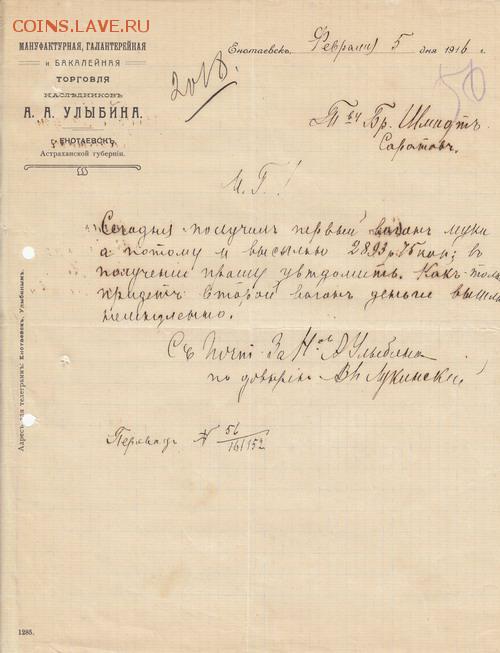 COINS.LAVE.RU
МАНУФАКТУРНАЯ, ГАЛАНТЕРЕЙНАЯ
и БАКАЛЕЙНАЯ
ТОРГОВЛЯ
НАСЛѢДНИКОВЪ
А. А. УЛЫБИНА.
г. ЕНОТАЕВСКЪ,
Астраханской губерніи.
Енотаевскъ, Февраля 5 дня 1916 г.
50
Т-ву Бр. Шмидтъ
Саратовъ.
М. Г.!
Сегодня получилъ первый вагонъ муки
а потому и высылаю 2893 р. 75 коп; в
получении прошу увѣдомить. Какъ толь
придетъ второй вагонъ деньги вышлю
немедленно.
Съ почт. За Н-въ А Улыбина
по довѣрію Лукинскій
Переводъ № 56/161152
Адресъ для телеграммъ: Енотаевскъ, Улыбинымъ.
1285.